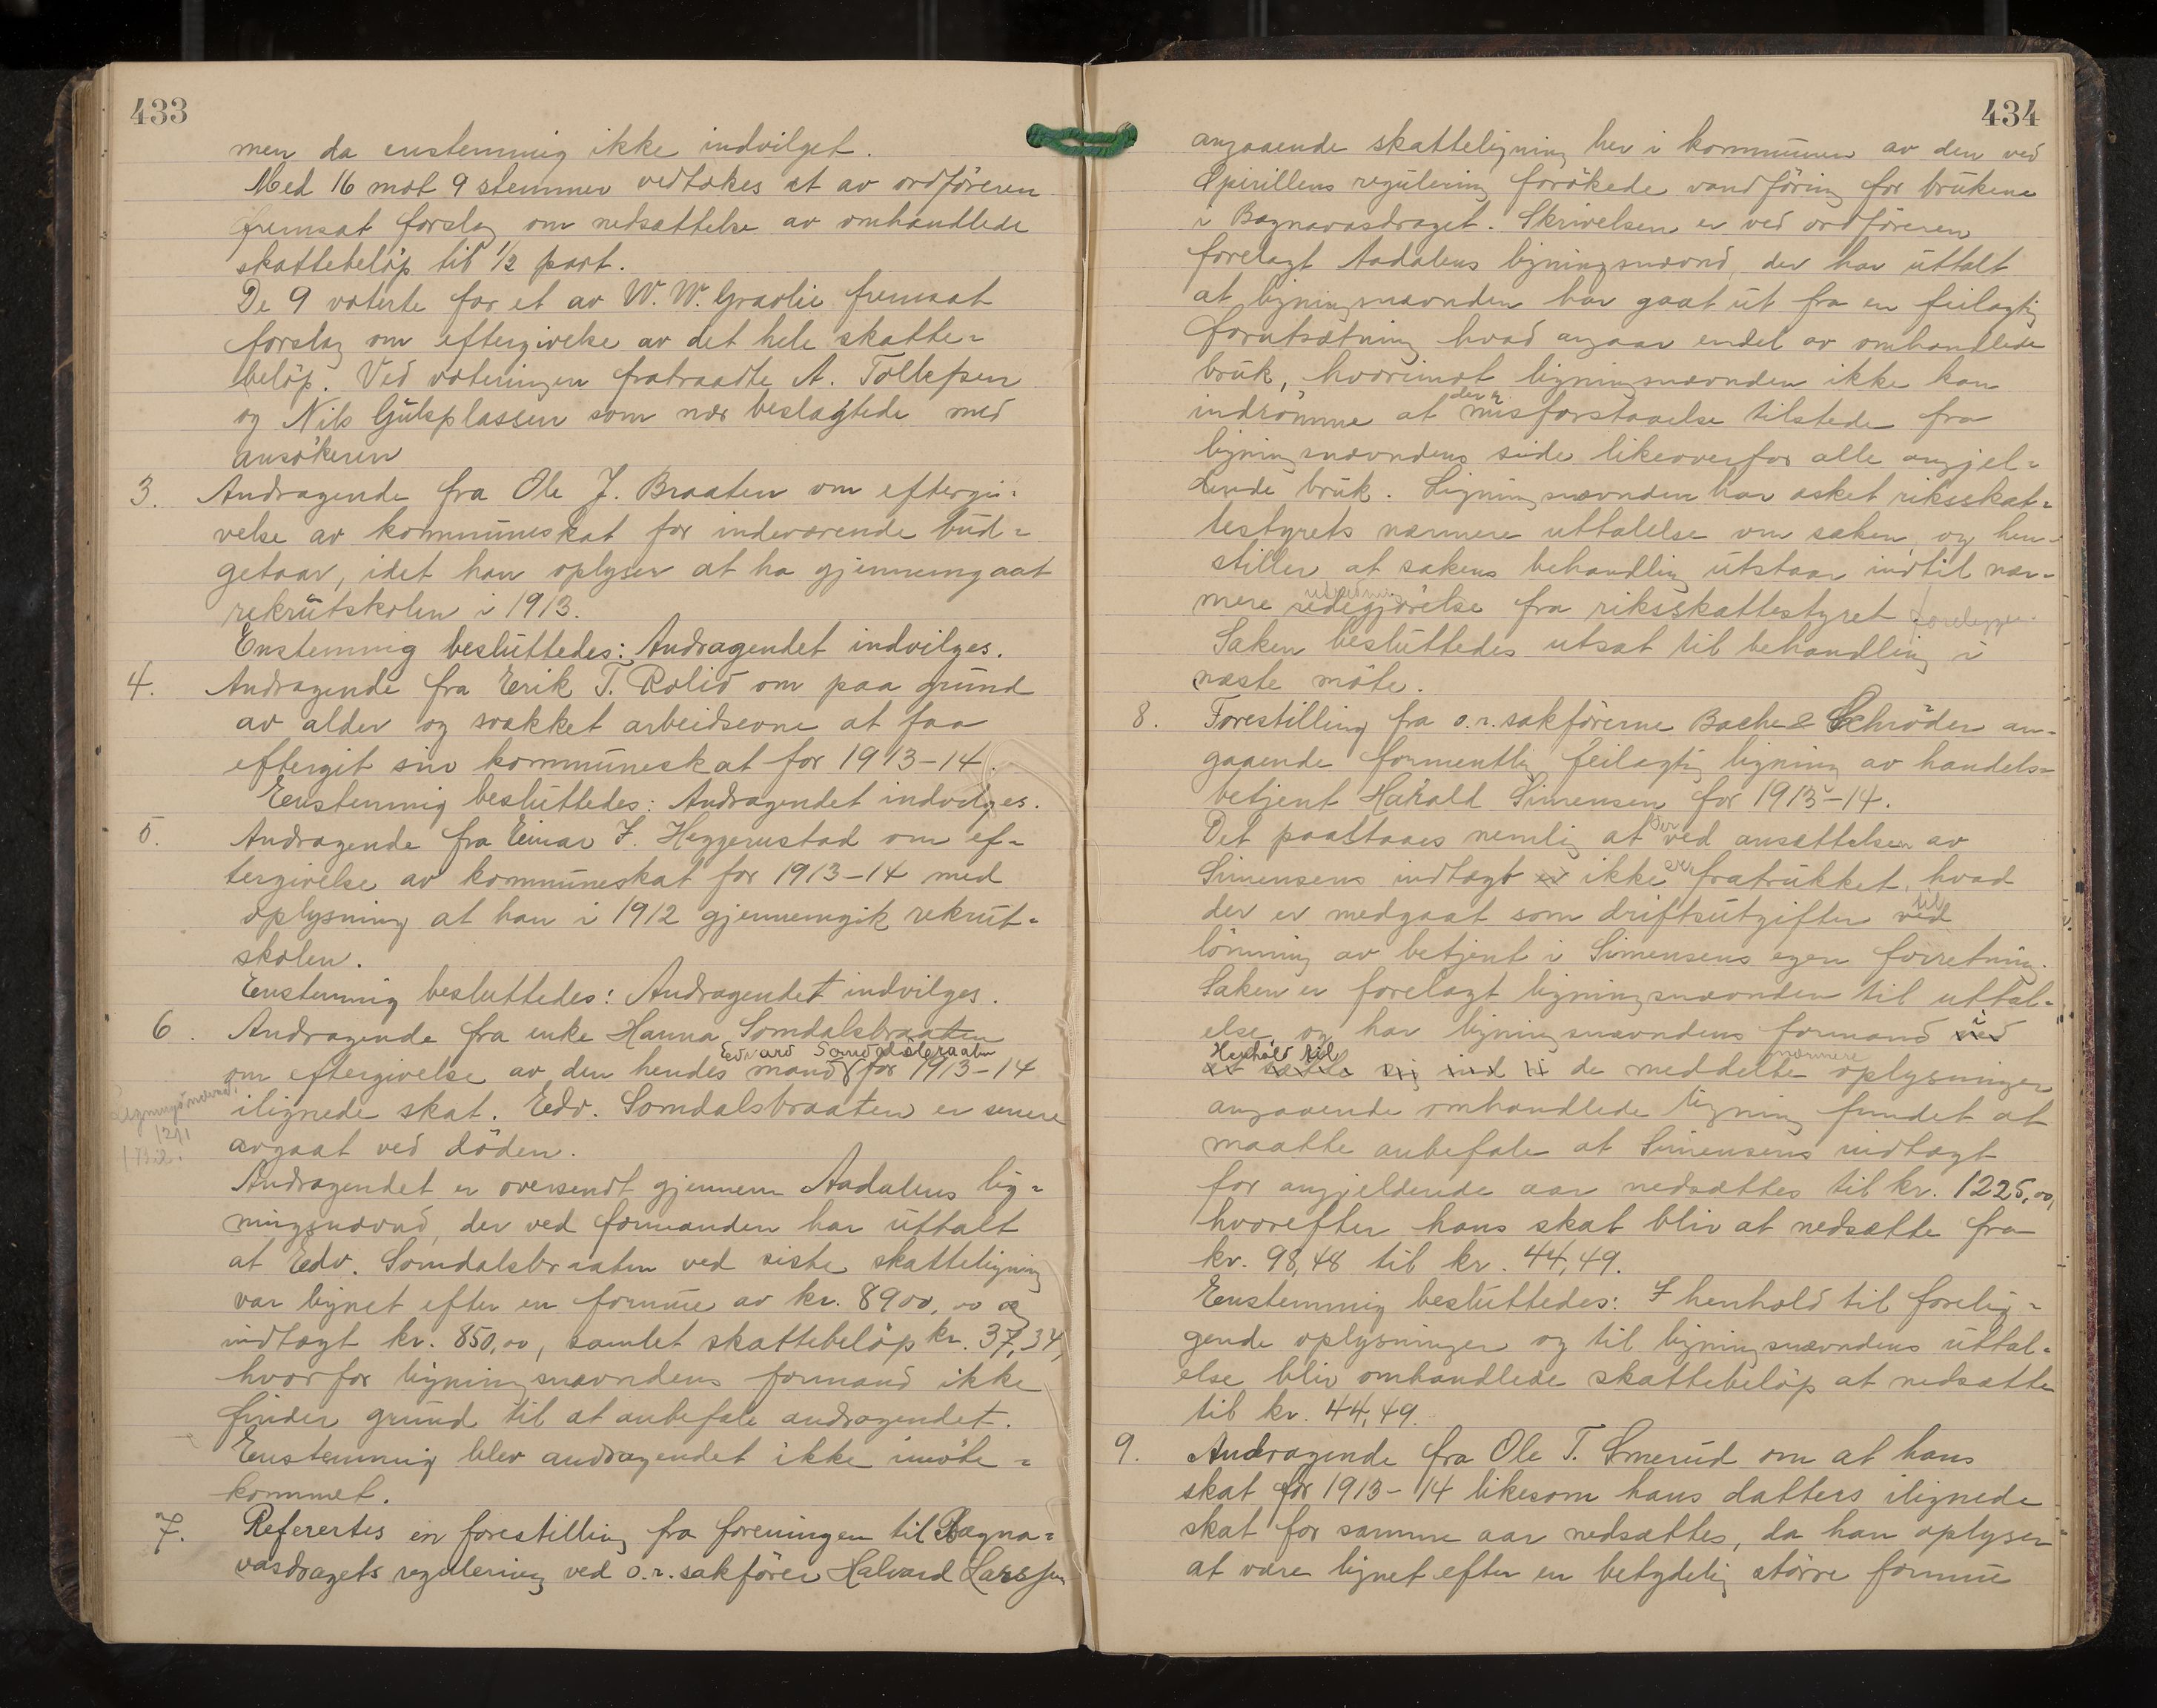 433
men da enstemmig ikke indvilget.
Med 16 mot 9 stemmer vedtokes et av ordföreren
fremsat forslag om nedsættelse av omhandlede
skattebelöp til 1/2 part.
De 9 voterte for et av W. W. Gravlie fremsat
forslag om eftergivelse av det hele skatte=
belöp. Ved voteringen fratraadte A. Tollefsen
og Nils Gulsplassen som nær beslagtede med
ansökeren
3. Andragende fra Ole J. Braaten om eftergi=
velse av kommuneskat for indeværende bud=
getaar, idet han oplyser at ha gjennemgaat
rekrutskolen i 1913.
Enstemmig besluttedes: Andragendet indvilges.
4. Andragende fra Erik T. Rolid om paa grund
av alder og svækket arbeidsevne at faa
eftergit sin kommuneskat for 1913-14.
Eenstemmig besluttedes: Andragendet indvilges.
5. Andragende fra Einar J. Heggerustad om ef=
tergivelse av kommuneskat for 1913-14 med
oplysning at han i 1912 gjennemgik rekrut=
skolen.
Eenstemmig besluttedes: Andragendet indvilges.
6. Andragende fra enke Hanna Somdalsbraaten
Edvard Somdalsbraaten
om eftergivelse av den hendes mand for 1913-14
ilignede skat. Edv. Somdalsbraaten er senere
avgaat ved döden.
Andragendet er oversendt gjennem Aadalens lig=
ningsnævnd, der ved formanden har uttalt
at Edv. Somdalsbraaten ved siste skatteligning
var lignet efter en formue av kr. 8900,00 og
indtægt kr. 850,00, samlet skattebelöp kr. 37,34,
hvorfor ligningsnævndens formand ikke
finder grund til at anbefale andragendet.
Eenstemmig blev andragendet ikke imöte=
kommet.
7. Referertes en forestilling fra foreningen til Bægna=
vasdragets regulering ved o.r.sakförer Halvard Larssen
434
angaaende skatteligning her i kommunen av den ved
Spirillens regulering forökede vandföring for brukene
i Bægnavasdraget. Skrivelsen er ved ordföreren
forelagt Aadalens ligningsnævnd, der har uttalt
at ligningsnævnden har gaat ut fra en feilagtig
forutsætning hvad angaar endel av omhandlede
bruk, hvorimot ligningsnævnden ikke kan
der er
indrömme at misforstaaelse tilstede fra
ligningsnævndens side likeoverfor alle angjel=
dende bruk. Ligningsnævnden har æsket riksskat=
testyrets nærmere uttalelse om saken, og hen=
stiller at sakens behandling utstaar indtil nær=
utredning
mere redegjörelse fra riksskattestyret foreligger.
Saken besluttedes utsat til behandling i
næste möte.
8. Forestilling fra o.r.sakförerne Bache & Schröder an=
gaaende formentlig feilagtig ligning av handels=
betjent Harald Simensen for 1913-14.
Det paastaaes nemlig at der ved ansættelsen av
Simensens indtægt er ikke er fratrukket, hvad
til
der er medgaat som driftsutgifter ved
lönning av betjent i Simensens egen forretning.
Saken er forelagt ligningsnævnden til uttal=
else og har ligningsnævndens formand ved i
Henhold til nærmere
de meddelte oplysninger
angaaende omhandlede ligning fundet at
maatte anbefale at Simensens indtægt
for angjeldende aar nedsættes til kr. 1225,00,
hvorefter hans skat bliv at nedsætte fra
kr. 98,48 til kr. 44,49.
Eenstemmig besluttedes: I henhold til forelig=
gende oplysninger og til ligningsnævndens uttal=
else bliv omhandlede skattebelöp at nedsætte
til kr. 44,49.
9. Andragende fra Ole T. Smerud om at hans
skat for 1913-14 likesom hans datters ilignede
skat for samme aar nedsættes, da han oplyser
at være lignet efter en betydelig större formue